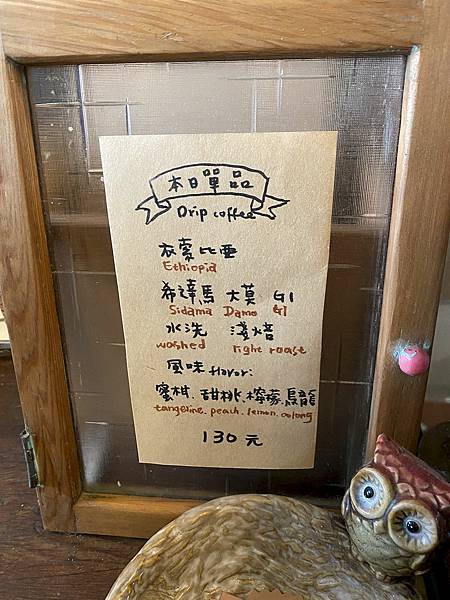 本日單品
Drip coffee
衣索比亞
Ethiopia
希達馬 大莫 G1
Sidama Damo G1
水洗 淺焙
washed right roast
風味 flavor:
蜜柑、甜桃、檸檬、烏龍
tangerine. peach. lemon. oolong
130元